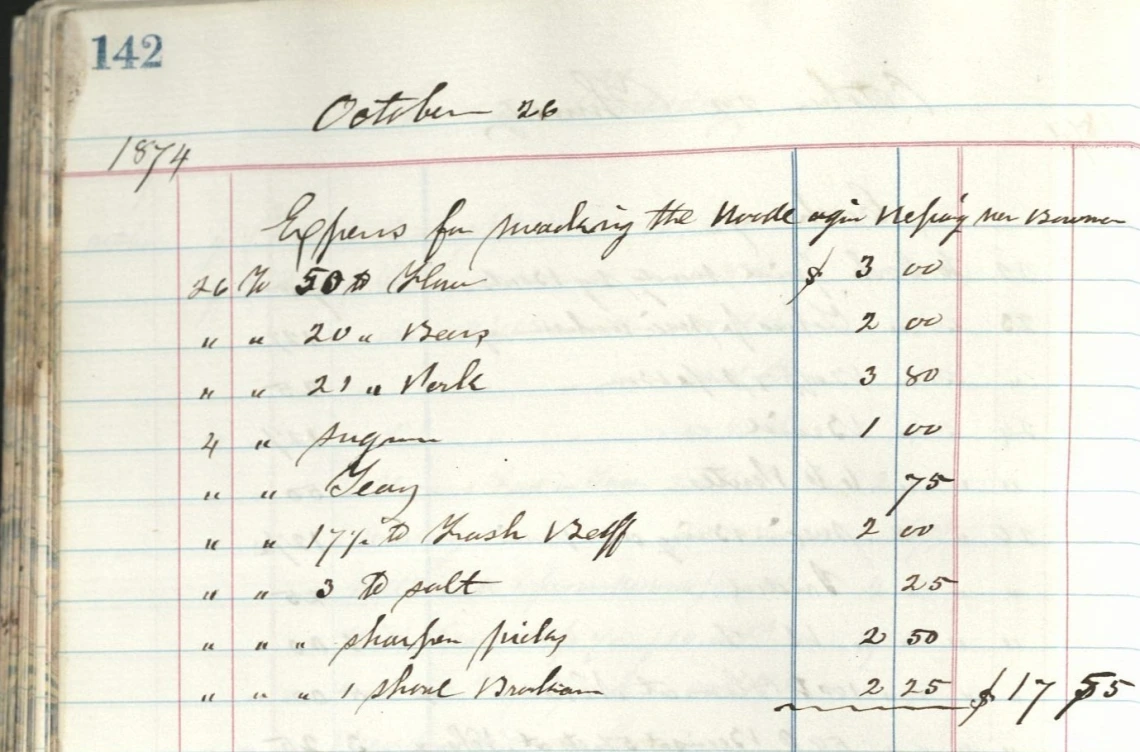 142
October 26
1874
Expens for meaking the Roode agin
26 To 50 lb Flour $ 3 00
" " 20 " Bens 2 00
" " 21 " Pork 3 80
4 " sugar 1 00
" " Teay 75
" " 17½ lb Frash Beff 2 00
" " 3 lb salt 25
" " " sharpen picks 2 50
" " " 1 shovl 2 25 $ 17 55